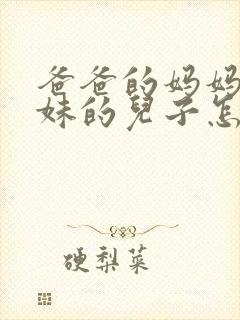 爸爸的妈妈
妹的兒子怎
硬梨菜